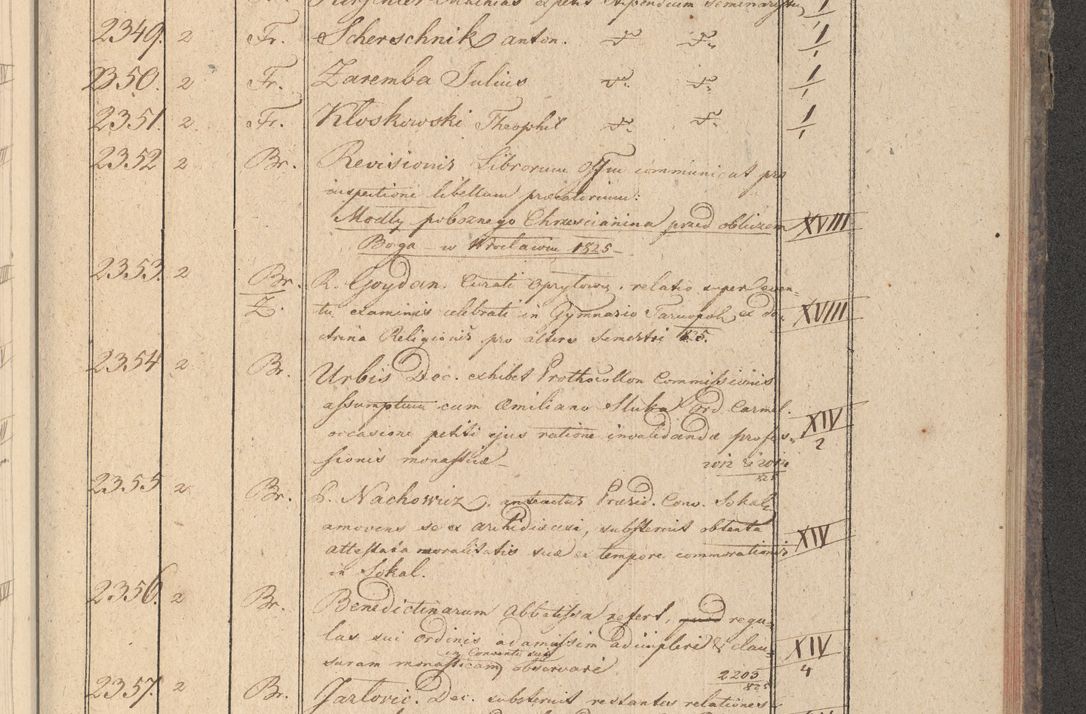 Mathias expetit stipendium seminaristi 1/1
2349. 2 Fr. Scherschnik anton. 1/1
2350. 2 Fr. Zaremba Julius 1/1
2351. 2 Fr. Kłoskowski Theophil 1/1
2352 2 Br. Revisionis Librorum Offm communicat pro
inspectione libellum precatorium:
Modły pobożnego Chrześcianina przed obliczem XVIII
Boga - w Wrocławiu 1825 -
2353. 2 Br. Z. R. Goydan. Curati relatio super even-
tu examinis celebrati in Gymnasio Tarnopol ex do- XVIII
ctrina Religionis pro altero Semestri 825.
2354 2 Br. Urbis Dec. exhibet Prothocollon Commissionis
assumptum cum Emiliano Ord Carmel.
occasione petiti ejus ratione invalidandæ profes- XIV/2
sionis monasticæ - 2012 & 2014/825
2355 2 Br. P. Nachowicz, Præsid. Conv. Sokal
amovens se ex archidiœcesi, substernit obtenta
attestata moralitatis suæ ex tempore commorationis XIV
in Sokal.
2356. 2 Br. Benedictinarum Abbatissa refert, quod regu-
las sui ordinis adamassim adimpleri & clau- XIV/4
in Conventu suo
suram monasticam observari 2205/825
2357. 2 Br. Jazlovic. Dec. substernit restantes relationes